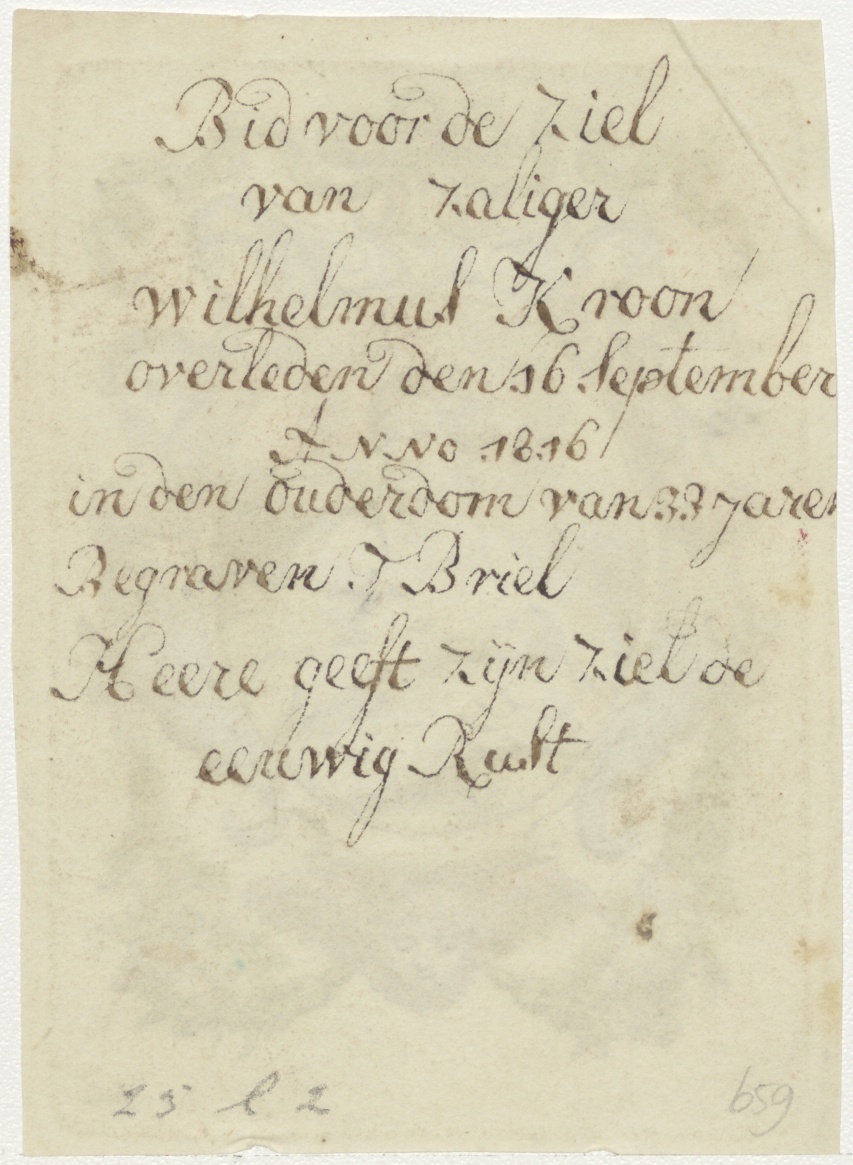 Bid voor de Ziel
van zaliger
Wilhelmus Kroon
overleden den 16 September
ANNo 1816
in den ouderdom van 33 jaren
Begraven T Briel
Heere geeft zijn ziel de
eeuwig Rust
25 l 2
659